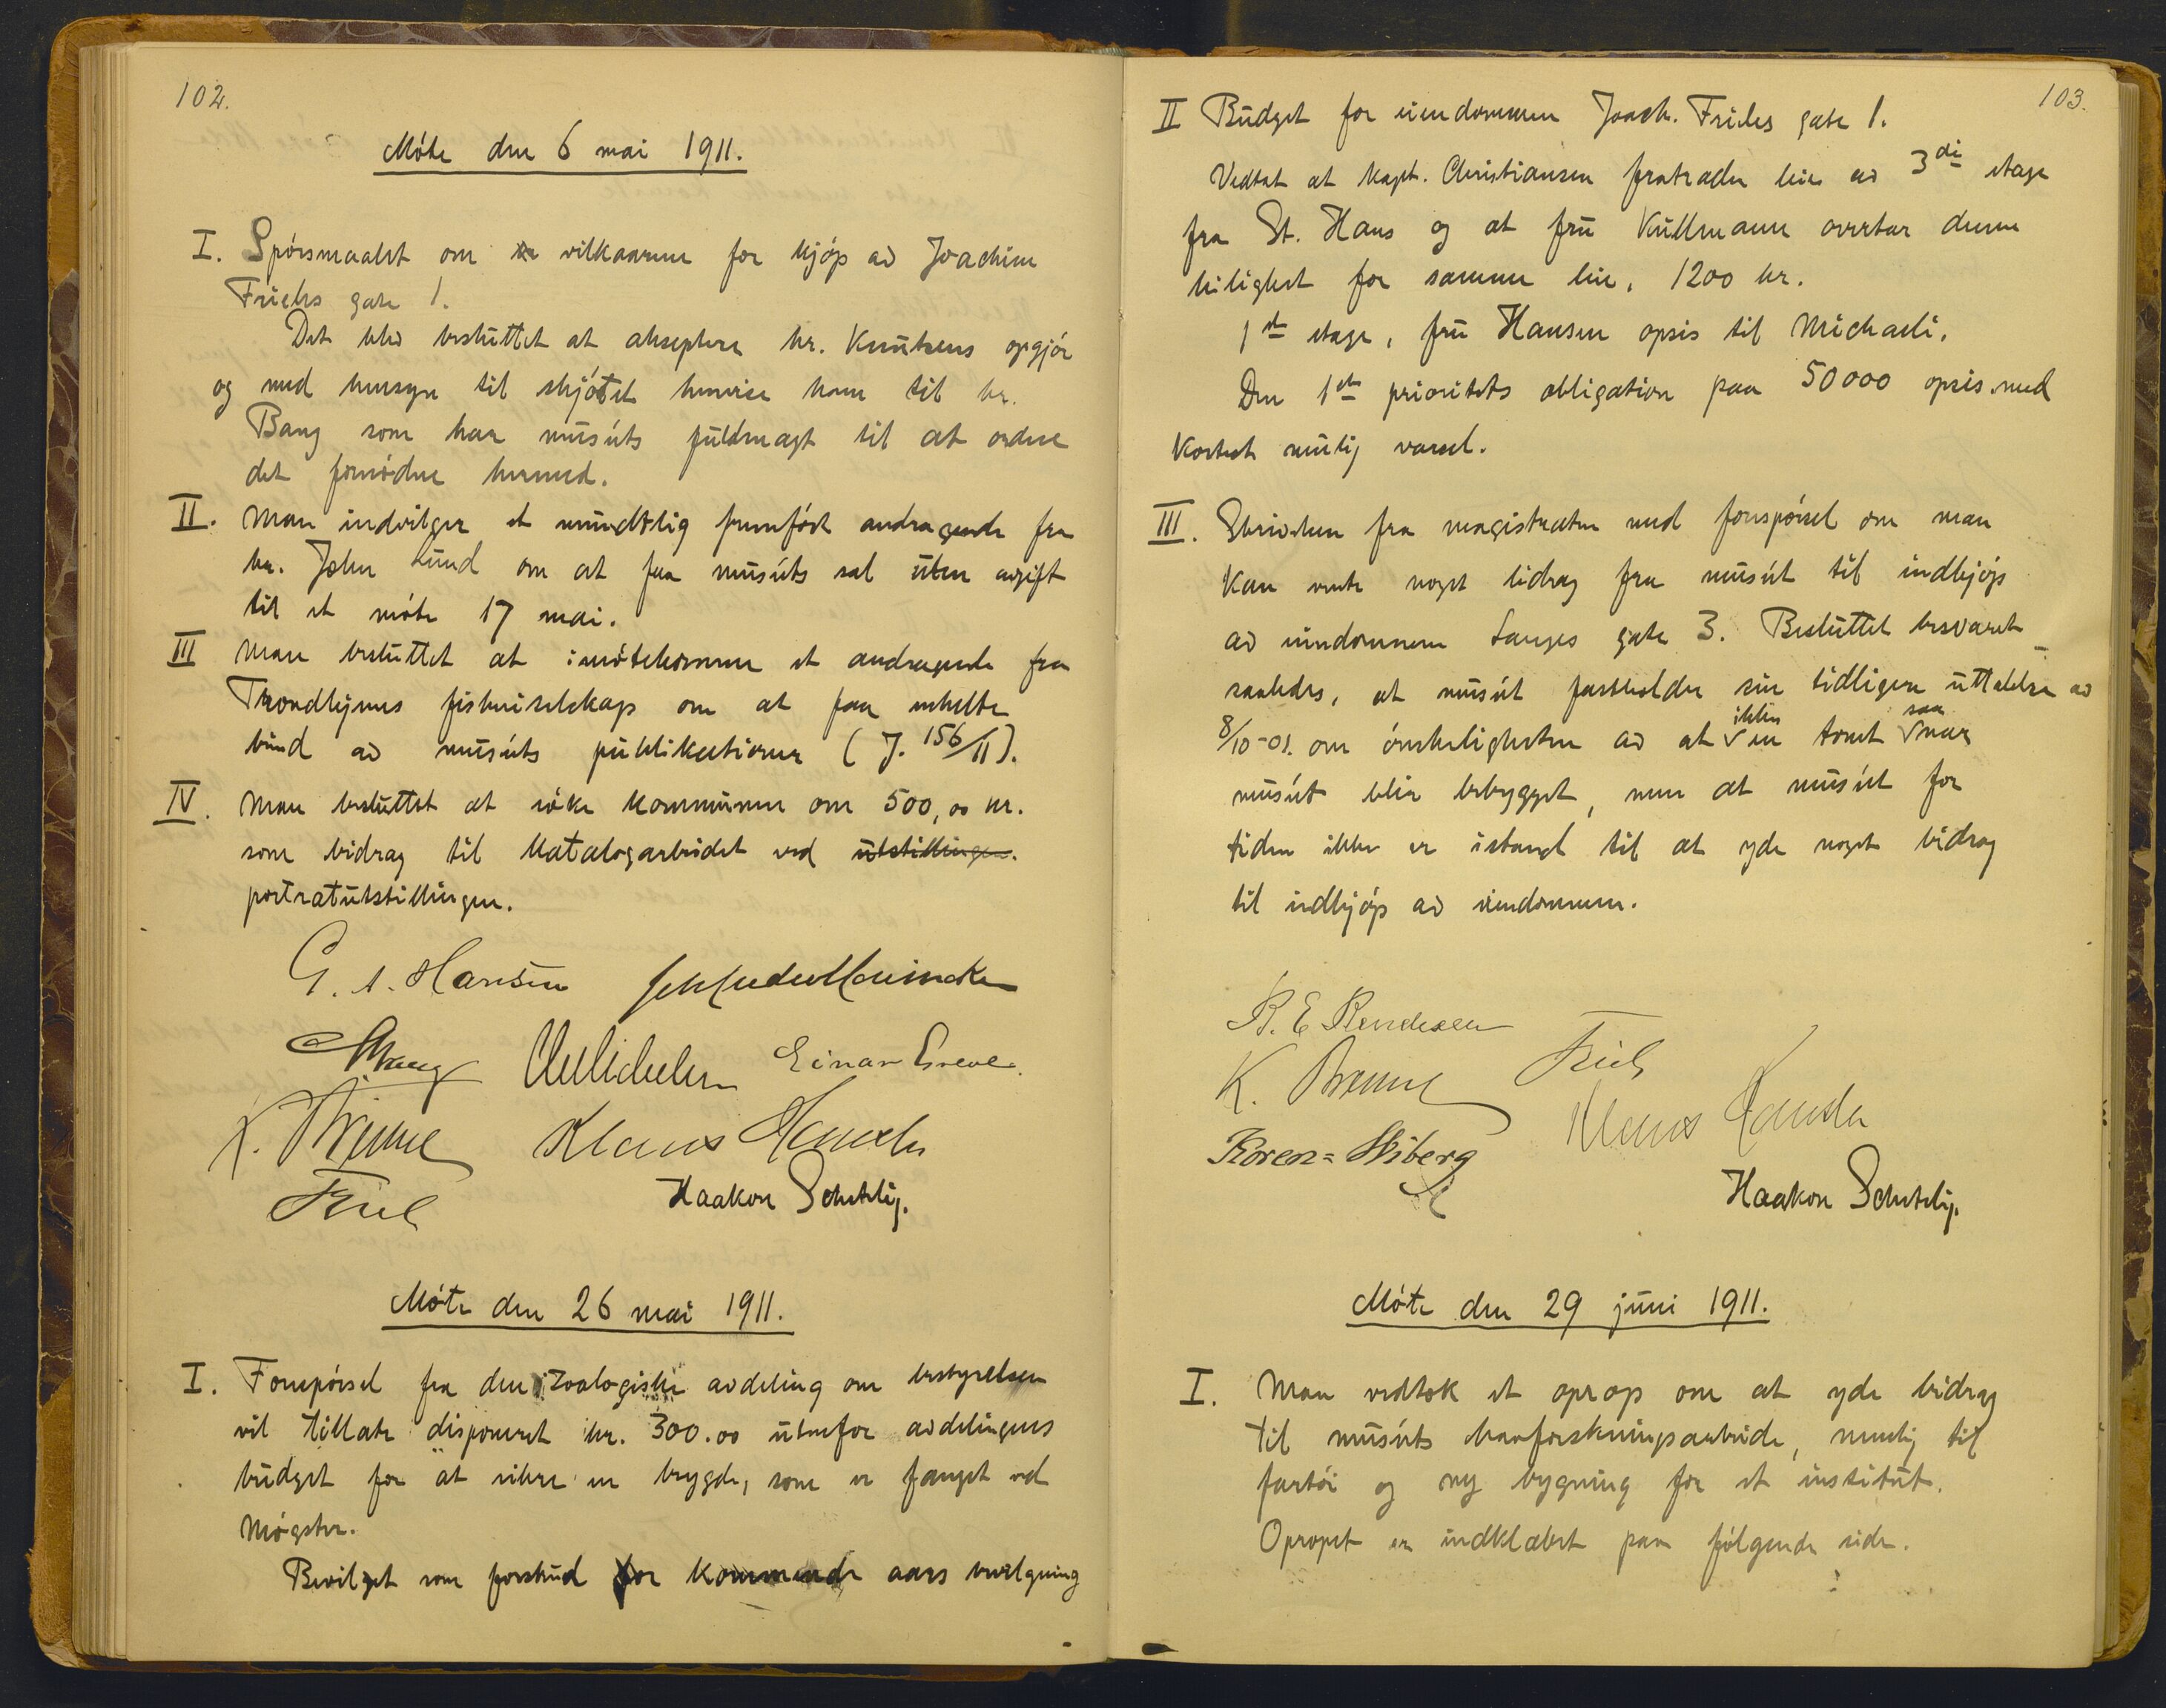 102.
Møte den 6 mai 1911.
I. Spørsmaalet om vilkaarene for kjøp av Joachim
Frieles gate 1.
Det blev besluttet at akseptere hr. Knutzens opgjør
og med hensyn til skjøtet henvise ham til hr.
Bang som har museets fuldmagt til at ordne
det fornødne hermed.
II. Man indvilger et mundtlig fremført andragende fra
hr. John Lund om at faa museets sal uten avgift
til et møte 17 mai.
III Man besluttet at imøtekomme et andragende fra
Trondhjems fiskeriselskap om at faa enkelte
bind av museets publikationer (J. 156/11).
IV. Man besluttet at søke kommunen om 500,00 kr.
som bidrag til katalogarbeidet ved utstillingen.
portrætutstillingen.
G. A. Hansen
Einar Greve.
Klaus Hanssen
Friele Haakon Schetelig.
Møte den 26 mai 1911.
I. Forespørsel fra den zoologiske avdeling om bestyrelsen
vil tillate disponeret kr. 300.00 utenfor avdelingens
budget for at sikre en brygde, som er fanget ved
Møgster.
Bevilget som forskud for kommende aars bevilgning
103.
II Budget for eiendommen Joach. Frieles gate 1.
Vedtat at kapt. Christiansen fratræder leie av 3die etage
fra St. Hans og at fru Kullmann overtar denne
leilighet for samme leie, 1200 kr.
1ste etage, fru Hansen opsis til Michaeli.
Den 1ste prioritets obligation paa 50000 opsis med
kortest mulig varsel.
III. Skrivelse fra magistraten med forespørsel om man
kan vente noget bidrag fra museet til indkjøp
av eiendommen Langes gate 3. Besluttet besvaret
saaledes, at museet fastholder sin tidligere uttalelse av
8/10-01. om ønskeligheten av at ikke en tomt saa nær
museet blir bebygget, men at museet for
tiden ikke er istand til at yde noget bidrag
til indkjøp av eiendommen.
Friele
Koren-Wiberg Klaus Hanssen
Haakon Schetelig.
Møte den 29 juni 1911.
I. Man vedtok et oprop om at yde bidrag
til museets havforskningsarbeide, nemlig til
fartøi og ny bygning for et institut.
Opropet er indklæbet paa følgende side.